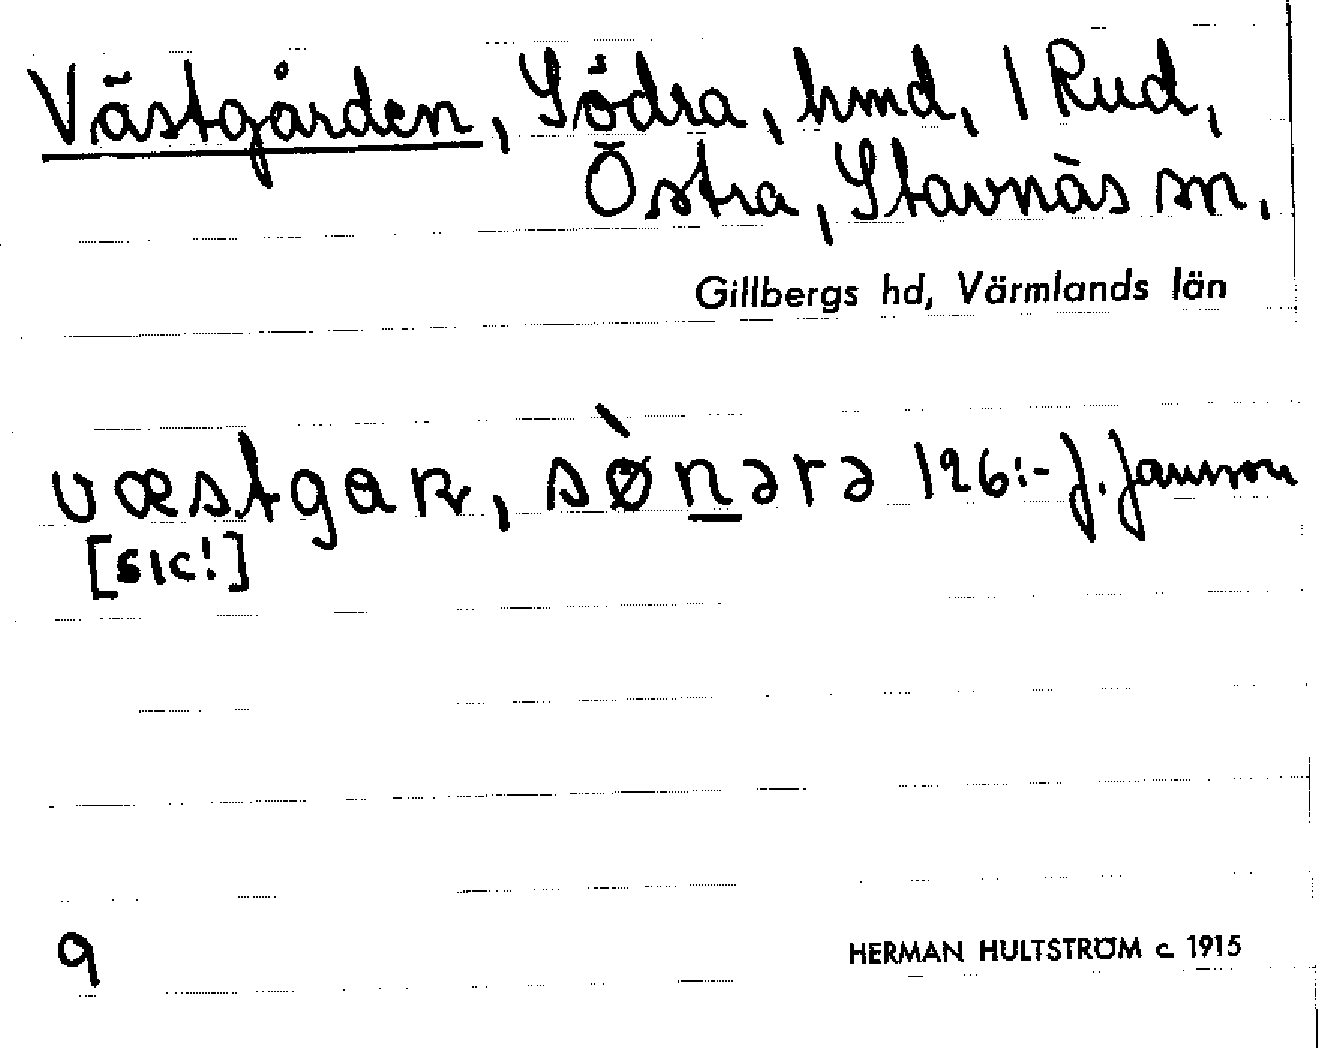 Västgården, Södra, hmd, 1 Rud,
Östra, Stavnäs sn.
Gillbergs hd, Värmlands län
væstgaɳ, sønərə 126:- J. Jansson
[sic!]
9
HERMAN HULTSTRÖM c. 1915